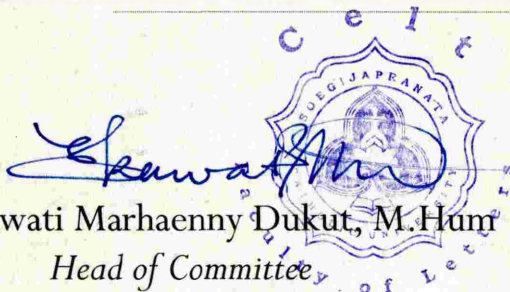 Celt
SOEGIJAPRANATA
wati Marhaenny Dukut, M.Hum
Head of Committee
aculty of Letters